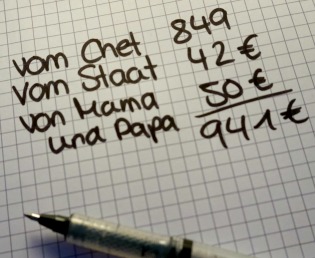 vom Chef 849
vom Staat 42 €
von Mama 50 €
und Papa 941 €